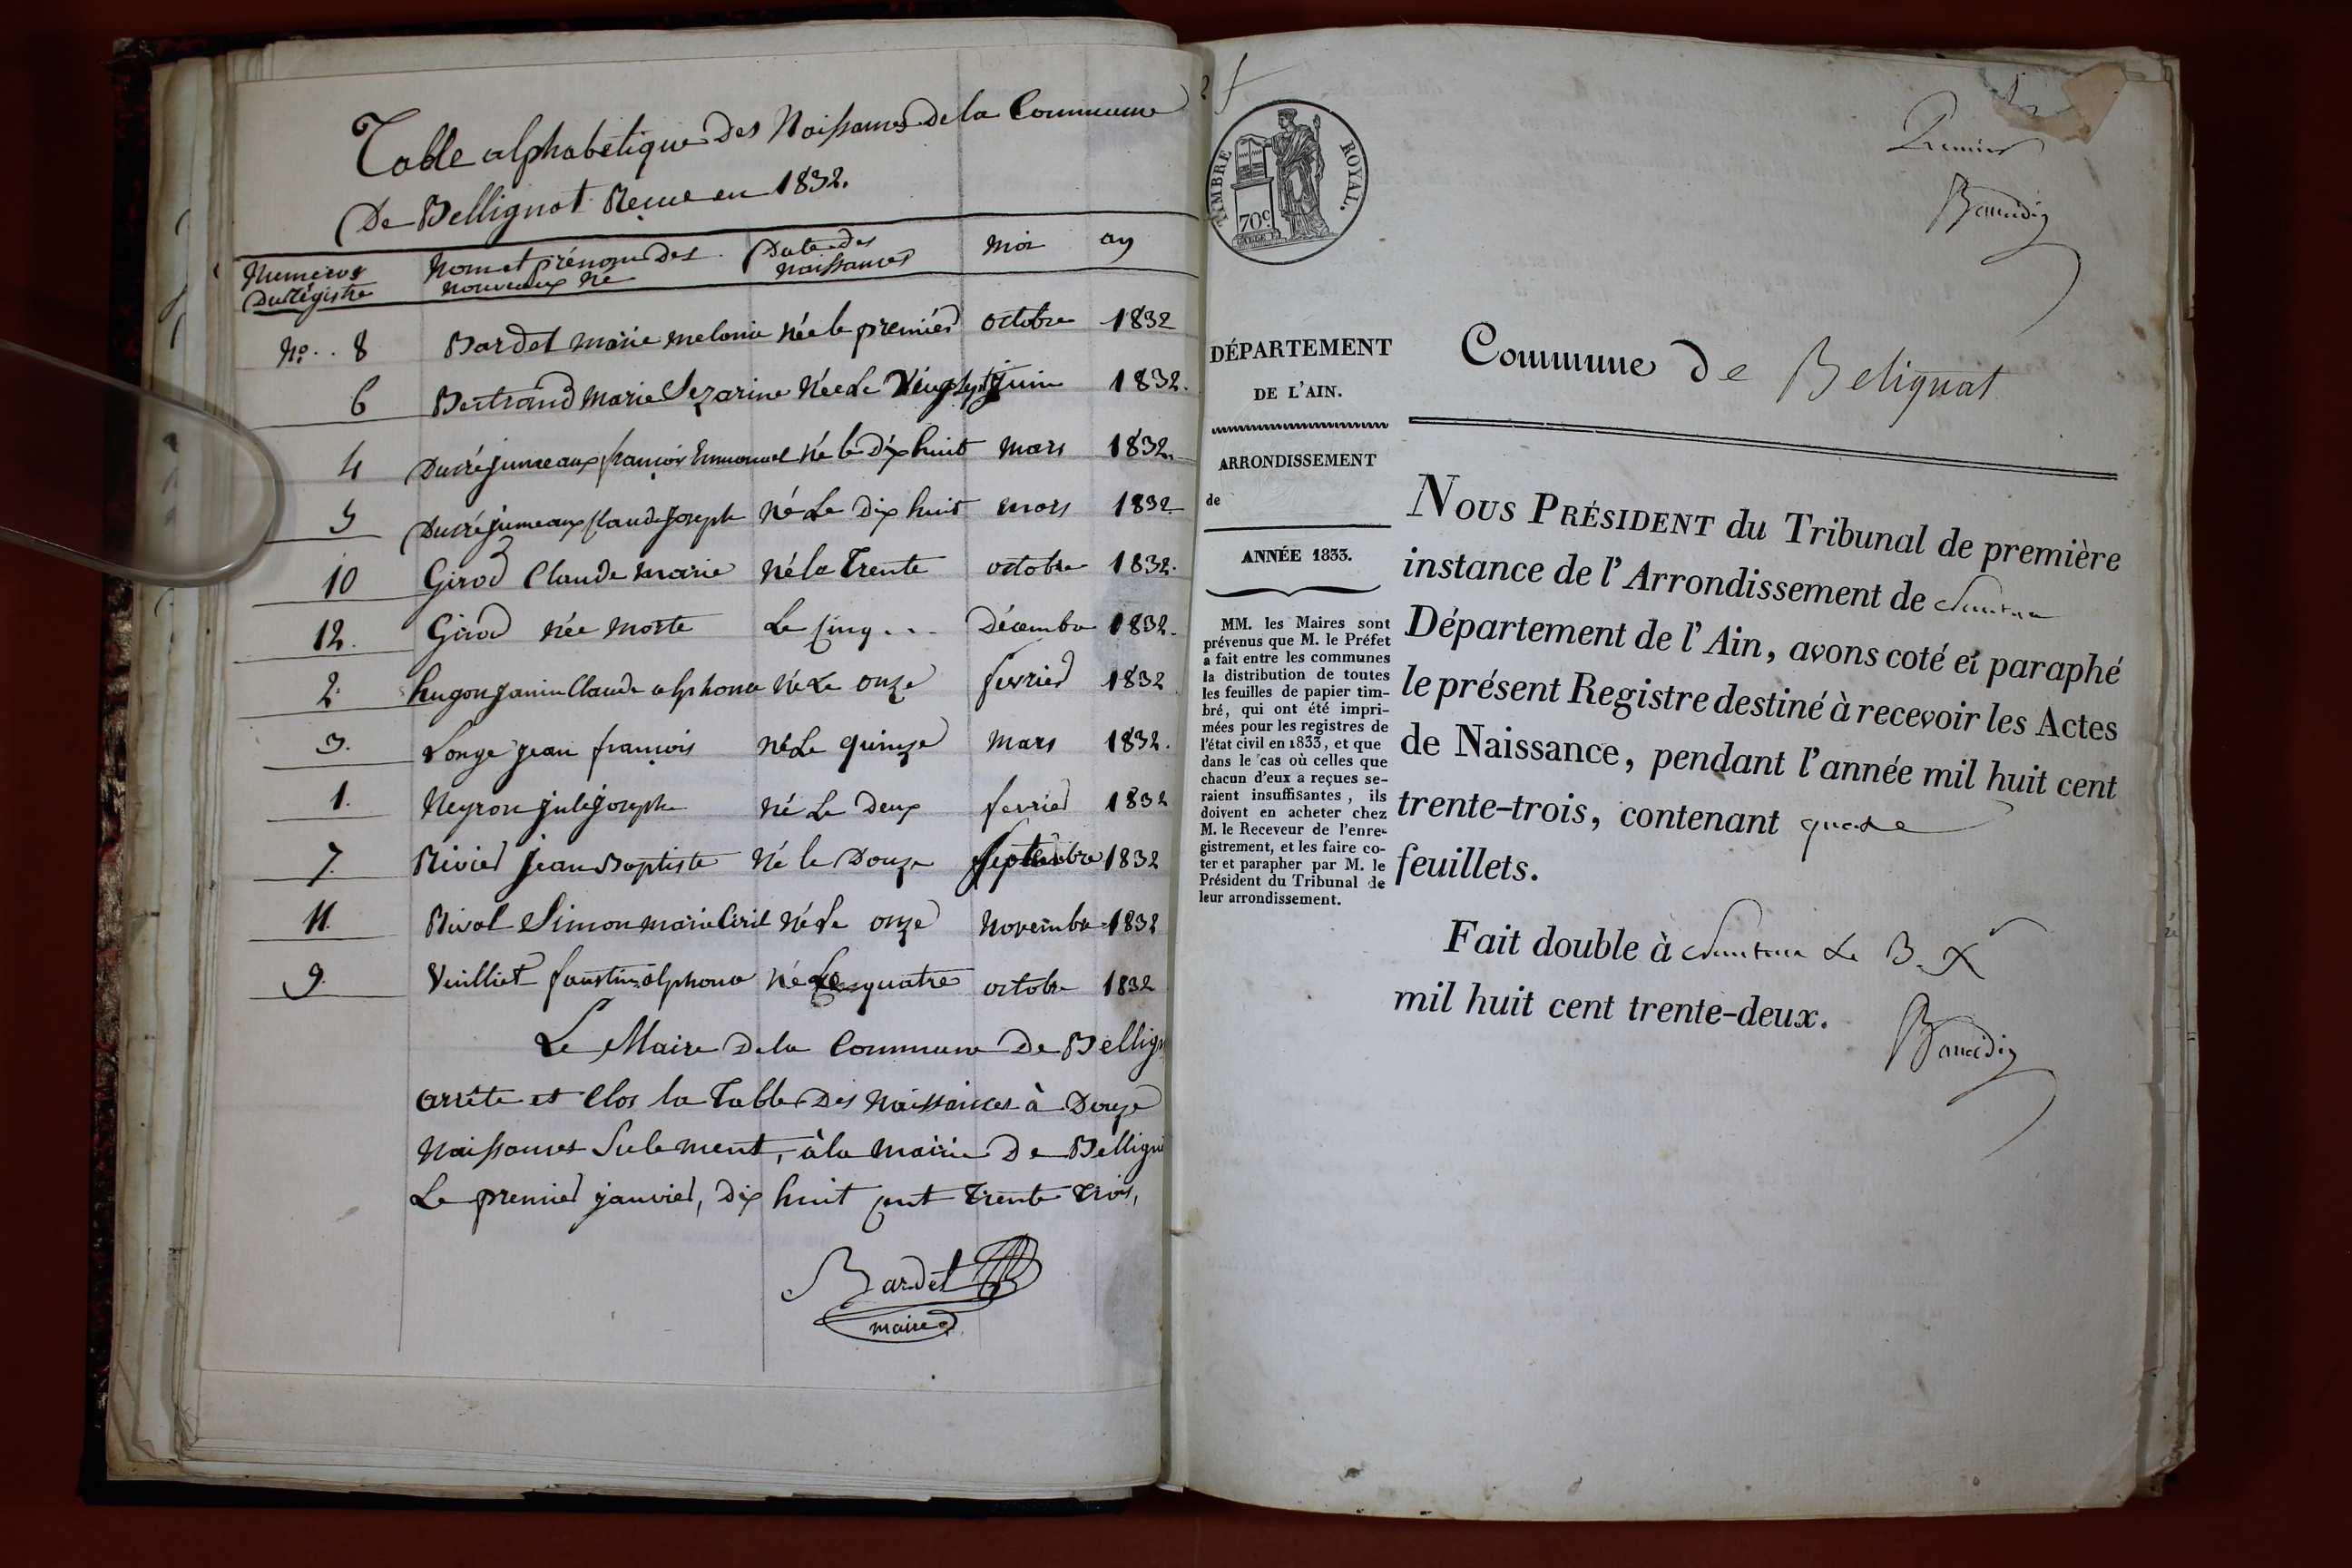 Table alphabétique des Naissances de la Commune
De Bellignat Reçue en 1832.
Numéros Du Régistre | Nom et prénom des nouveaux né | Date des naissances | mois | an
No. . 8 Bardet marie melanie née le premier octobre 1832
6 Bertrand Marie Sezarine Née Le Vingt sept juin 1832.
4 Ducré jumeaux françois Emmanuel né le dix huit mars 1832.
5 Ducré jumeaux Claude Joseph né Le Dix huit mars 1832
10 Girod Claude marie né le Trente octobre 1832.
12. Girod née morte Le Cinq . . . Décembre 1832.
2. hugon Janin Claude alphonse né Le onze fevrier 1832
3. Longe jean françois né Le quinze mars 1832.
1. Neyron jule joseph né Le Deux fevrier 1832
7. Rivier Jean Baptiste né le Douze Septembre 1832
11. Rival Simon marie Ciril né Le onze novembre 1832
9. Vuilliet faustin alphonse né Le quatre octobre 1832
Le Maire de la Commune De Bellign
arrête et Clos la Table Des Naissances à Douze
Naissances Sulement, à la mairie De Bellign
Le premier janvier, Dix huit cent Trente Trois,
Bardet
maire
TIMBRE ROYAL.
70c
Premier
DÉPARTEMENT
DE L'AIN.
ARRONDISSEMENT
de
ANNÉE 1833.
MM. les Maires sont
prévenus que M. le Préfet
a fait entre les communes
la distribution de toutes
les feuilles de papier tim-
bré, qui ont été impri-
mées pour les registres de
l'état civil en 1833, et que
dans le cas où celles que
chacun d'eux a reçues se-
raient insuffisantes, ils
doivent en acheter chez
M. le Receveur de l'enre-
gistrement, et les faire co-
ter et parapher par M. le
Président du Tribunal de
leur arrondissement.
Commune de Belignat
NOUS PRÉSIDENT du Tribunal de première
instance de l'Arrondissement de Nantua
Département de l'Ain, avons coté et paraphé
le présent Registre destiné à recevoir les Actes
de Naissance, pendant l'année mil huit cent
trente-trois, contenant quatre
feuillets.
Fait double à Nantua Le
mil huit cent trente-deux.